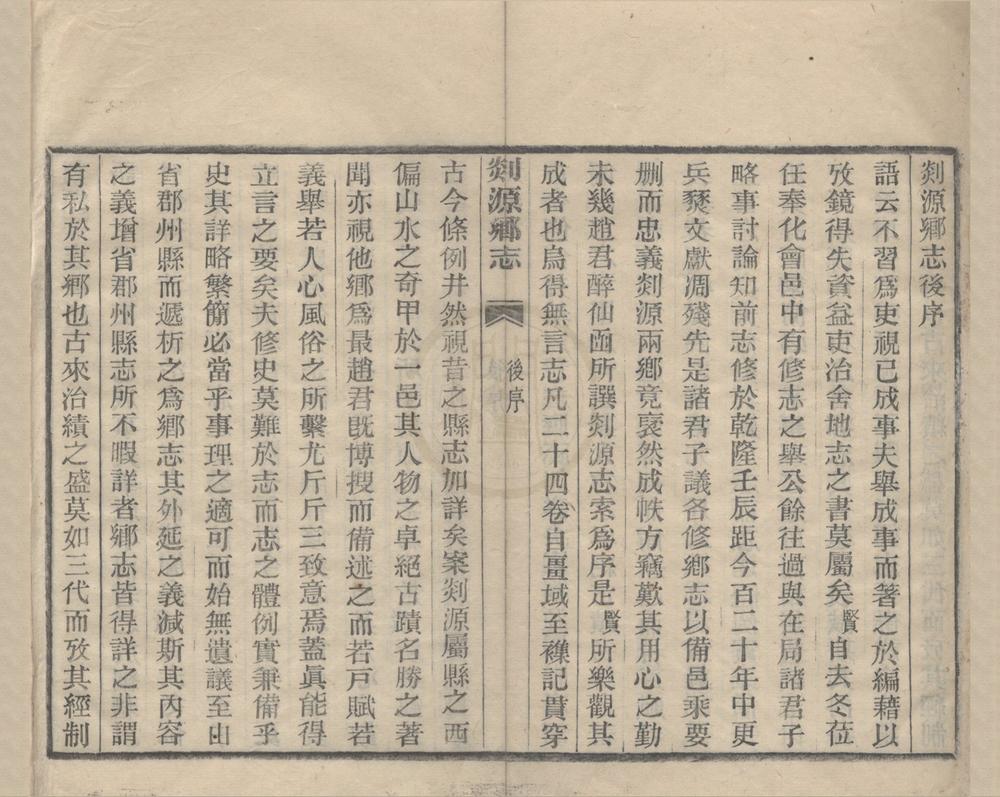 剡源鄉志後序
語云不習爲吏視已成事夫舉成事而著之於編藉以
攷鏡得失資益吏治舍地志之書莫屬矣賢自去冬莅
任奉化會邑中有修志之舉公餘往過與在局諸君子
略事討論知前志修於乾隆壬辰距今百二十年中更
兵燹文獻凋殘先是諸君子議各修鄉志以備邑乘要
删而忠義剡源兩鄉竟裒然成帙方竊歎其用心之勤
未幾趙君醉仙函所譔剡源志索爲序是賢所樂觀其
成者也烏得無言志凡二十四卷自畺域至襍記貫穿
剡源鄉志
後序
古今條例井然視昔之縣志加詳矣案剡源屬縣之西
偏山水之奇甲於一邑其人物之卓絕古蹟名勝之著
聞亦視他鄉爲最趙君既博搜而備述之而若戸賦若
義舉若人心風俗之所繫尤斤斤三致意焉蓋眞能得
立言之要矣夫修史莫難於志而志之體例實兼備乎
史其詳略繁簡必當乎事理之適可而始無遺議至由
省郡州縣而遞析之爲鄉志其外延之義減斯其內容
之義增省郡州縣志所不暇詳者鄉志皆得詳之非謂
有私於其鄉也古來治績之盛莫如三代而攷其經制